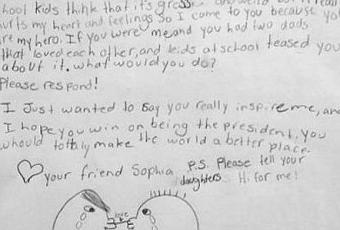 hool kids think that it's gross and weird but it really
hurts my heart and feelings So I come to you because you
re my hero. If you were me and you had two dads
that loved each other, and kids at school teased you
about it. what would you do?
Please respond!
I Just wanted to say you really inspire me, and
I hope you win on being the president, you
whould totally make the world a better place.
your friend Sophia P.S. Please tell your
daughters Hi for me!
love